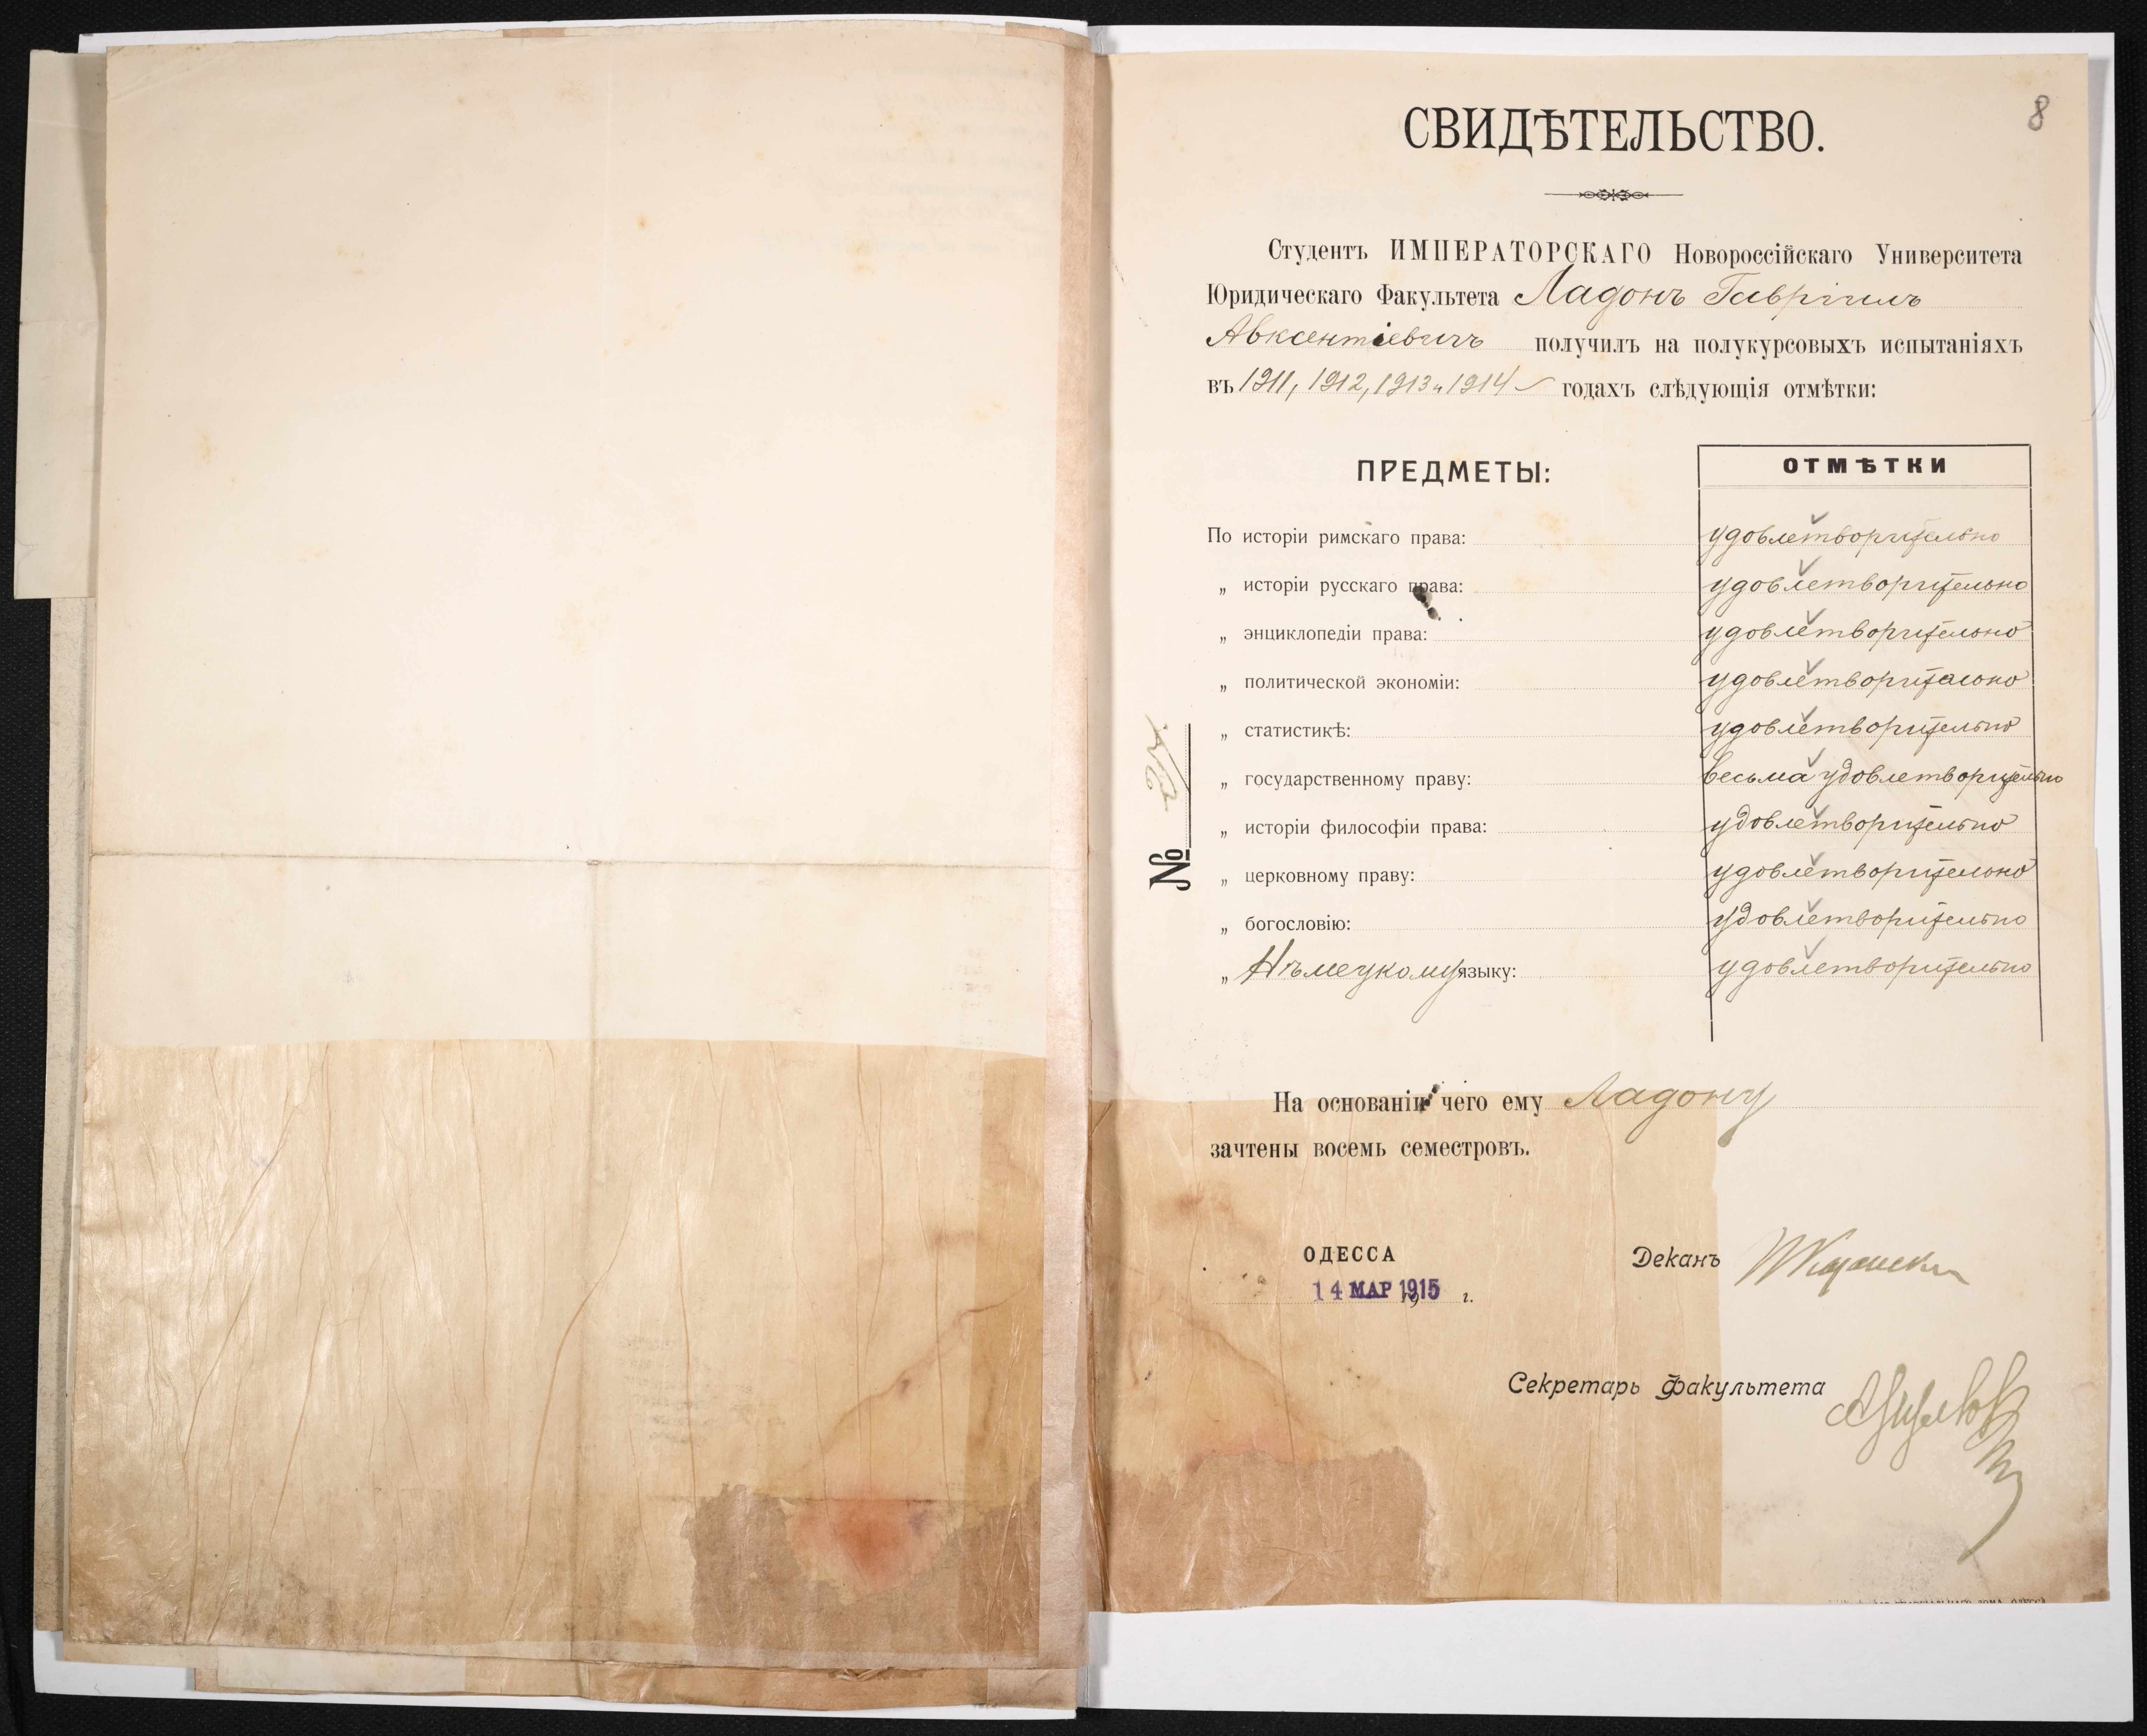 8
СВИДѢТЕЛЬСТВО.
Студентъ ИМПЕРАТОРСКАГО Новороссійскаго Университета
Юридическаго Факультета Ладонъ Гавріилъ
Авксентіевичъ получилъ на полукурсовыхъ испытаніяхъ
въ 1911, 1912, 1913 и 1914 годахъ слѣдующія отмѣтки:
ПРЕДМЕТЫ: ОТМѢТКИ
По исторіи римскаго права: удовлетворительно
„ исторіи русскаго права: удовлетворительно
„ энциклопедіи права: удовлетворительно
„ политической экономіи: удовлетворительно
„ статистикѣ: удовлетворительно
„ государственному праву: весьма удовлетворительно
„ исторіи философіи права: удовлетворительно
„ церковному праву: удовлетворительно
„ богословію: удовлетворительно
„ Нѣмецкому языку: удовлетворительно
№
На основаніи чего ему Ладону
зачтены восемь семестровъ.
ОДЕССА Деканъ
14 МАР 1915 19 г.
Секретарь Факультета